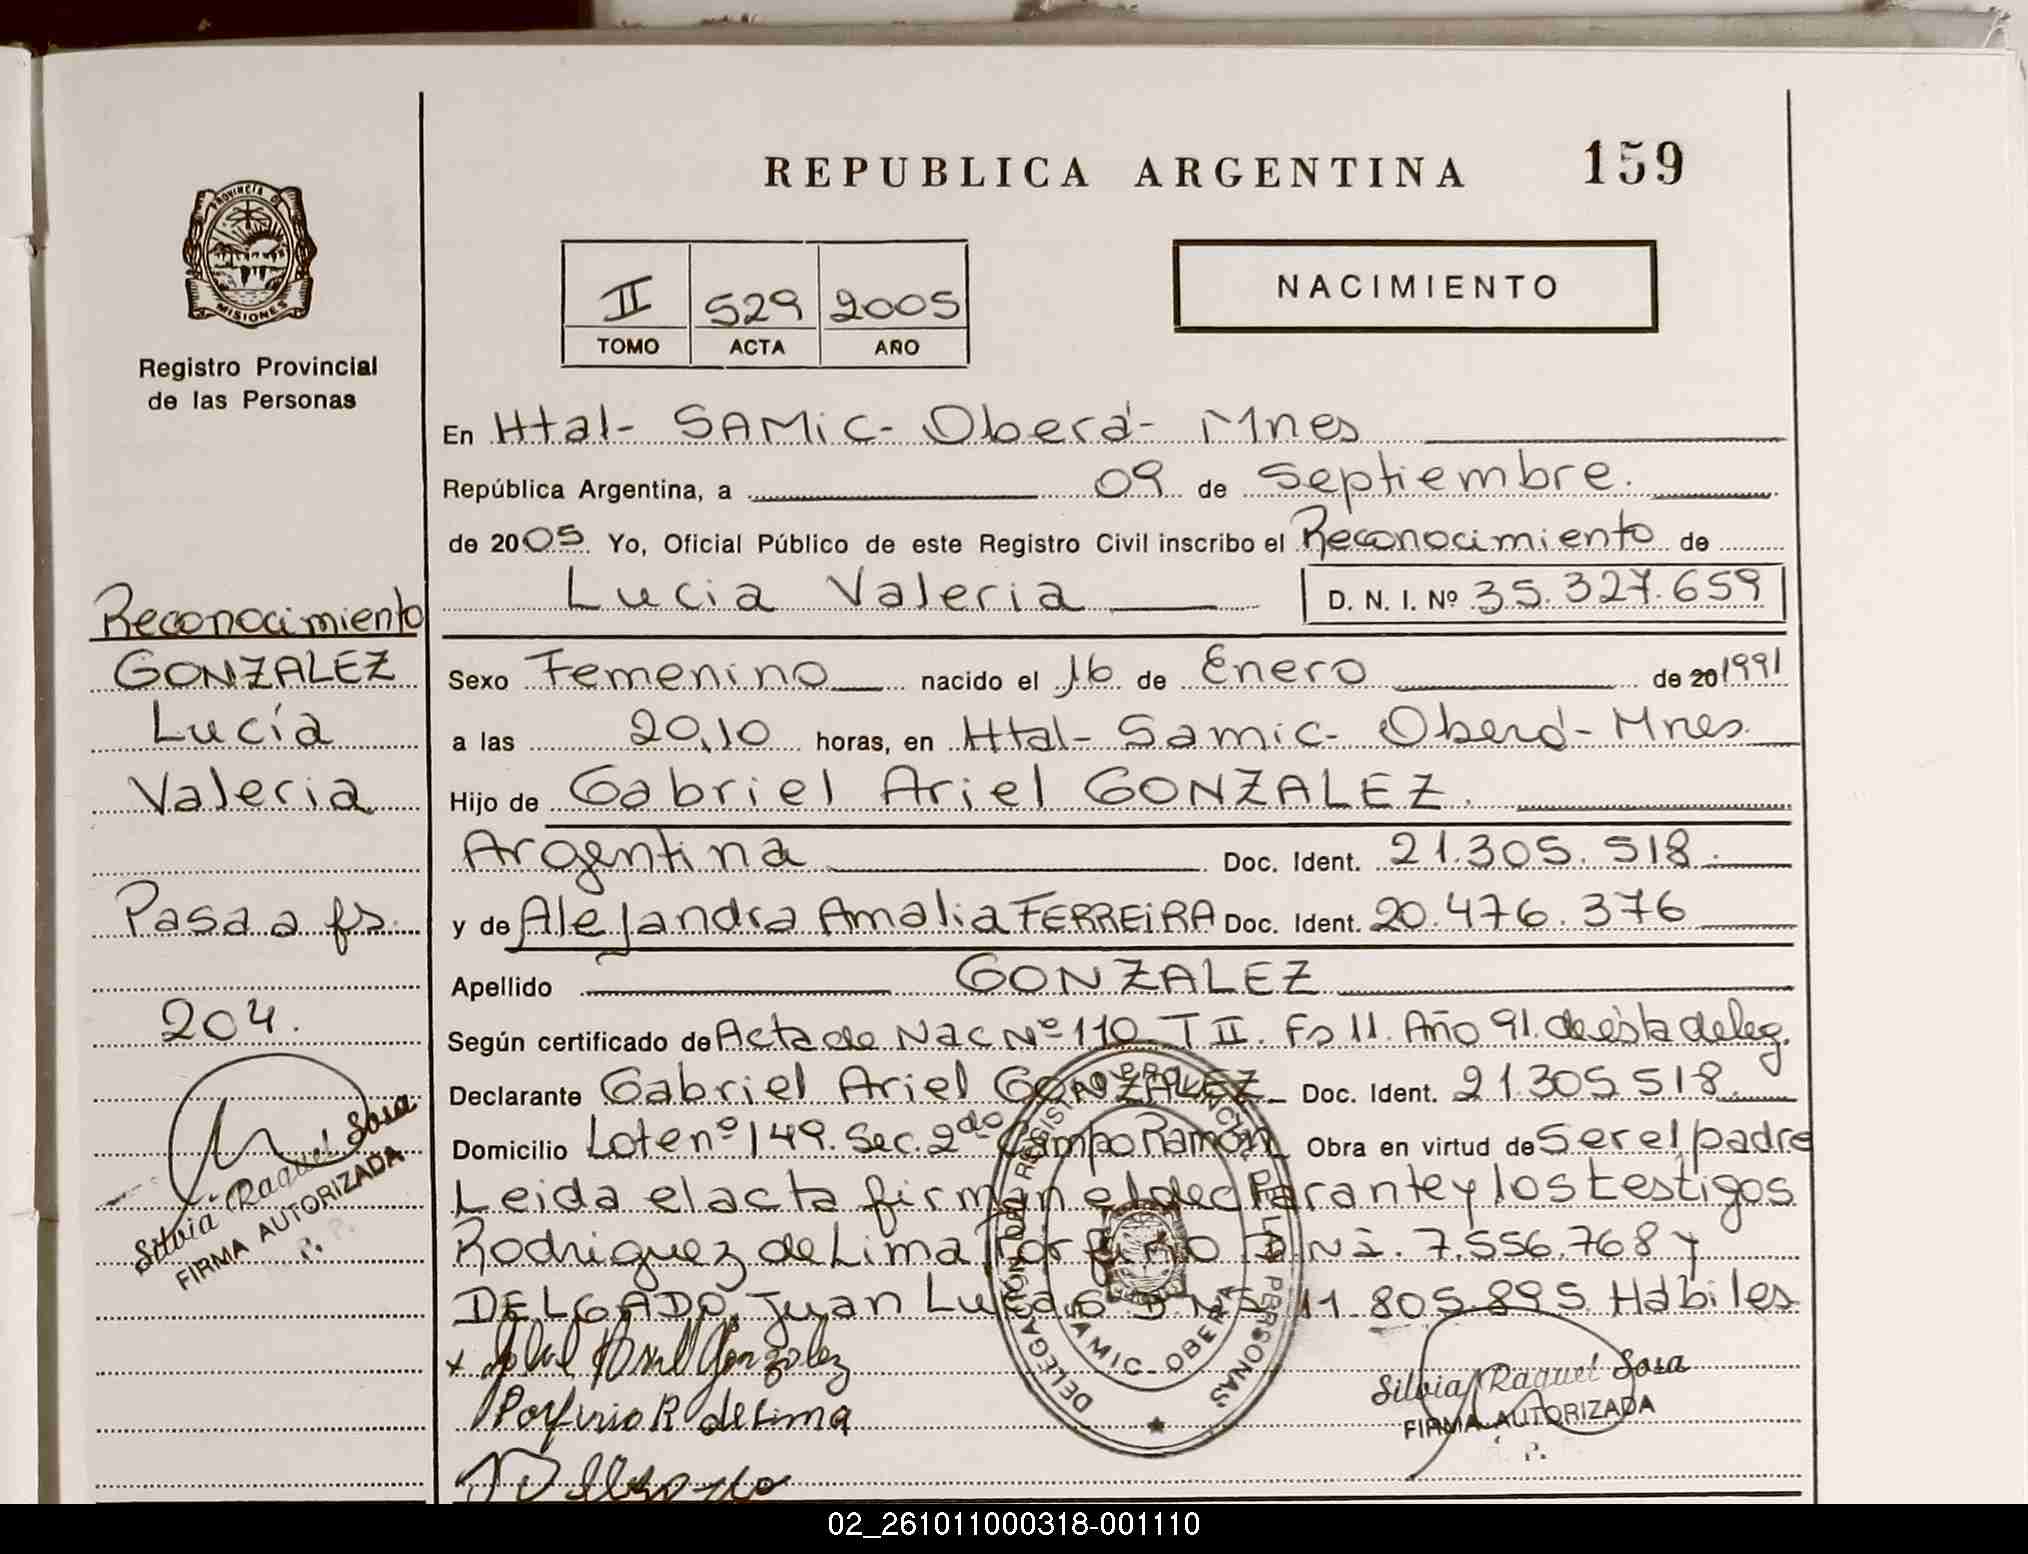 REPUBLICA ARGENTINA 159
PROVINCIA DE
MISIONES
Registro Provincial
de las Personas
II 529 2005
TOMO ACTA AÑO
NACIMIENTO
En Htal- SAMic- Oberá- Mnes
República Argentina, a 09 de Septiembre.
de 2005 Yo, Oficial Público de este Registro Civil inscribo el Reconocimiento de
Lucia Valeria D. N. I. Nº 35.327.659
Sexo Femenino nacido el 16 de Enero de 20 1991
a las 20,10 horas, en Htal- Samic- Oberá- Mnes.
Hijo de Gabriel Ariel GONZALEZ.
Argentina Doc. Ident. 21.305.518.
y de Alejandra Amalia FERREiRA Doc. Ident. 20.476.376
Apellido GONZALEZ
Según certificado de Acta de Nac Nº 110 T II. Fs 11. Año 91. de ésta deleg.
Declarante Gabriel Ariel GONZALEZ Doc. Ident. 21.305 518.
Domicilio Lote nº 149. Sec. 2do Campo Ramón Obra en virtud de Ser el padre
Leida el acta firman el declarante y los testigos
Rodriguez de Lima, Porfirio D.N.I. 7.556.768 y
DELGADO, Juan Lucas DNI 11.805.895 Hábiles
Reconocimiento
GONZALEZ
Lucía
Valeria
Pasa a fs.
204.
Silvia Raquel Sosa
FIRMA AUTORIZADA
x Gabriel Ariel Gonzalez
Porfirio R de Lima
DELEGACIÓN DEL REGISTRO PROVINCIAL DE LAS PERSONAS
SAMIC - OBERA
Silvia Raquel Sosa
FIRMA AUTORIZADA
02_261011000318-001110